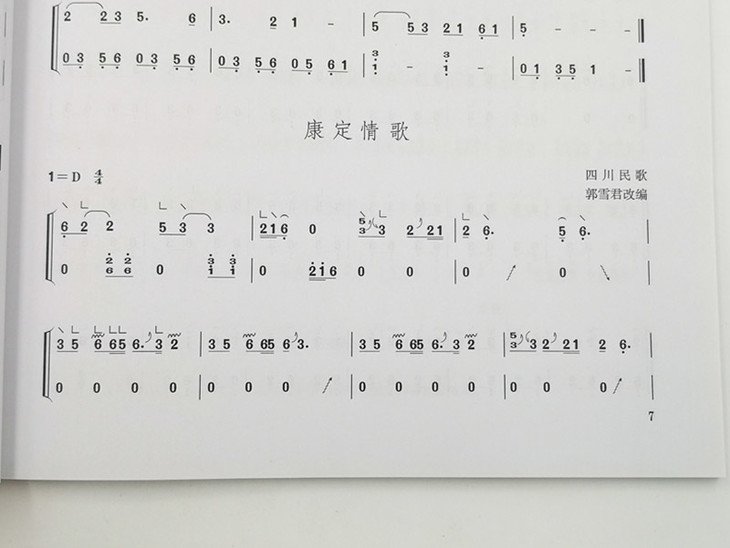 2 2 3 5. 6 3. 2 1 - 5 5 3 2 1 6 1 5 - - -
0 3 5 6 0 3 5 6 0 3 5 6 0 5 6 1 3 1 - 3 1 - 0 1 3 5 1 -
康定情歌
1=D 4/4
四川民歌
郭雪君改编
6 2 2 5 3 3 2 1 6 0 5 3 3 2 2 2 1 2 6. 5 6.
0 2 6 2 6 0 3 1 3 1 0 2 1 6 0 0 0 0 0 0 0
3 5 6 6 5 6. 3 2 3 5 6 6 5 6 3. 3 5 6 6 5 6. 3 2 5 3 3 2 2 1 2 6.
0 0 0 0 0 0 0 0 0 0 0 0 0 0 0
7